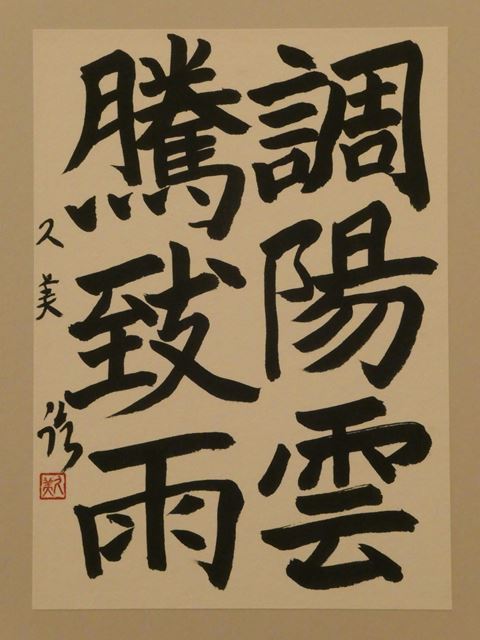 調陽雲
騰致雨
久美